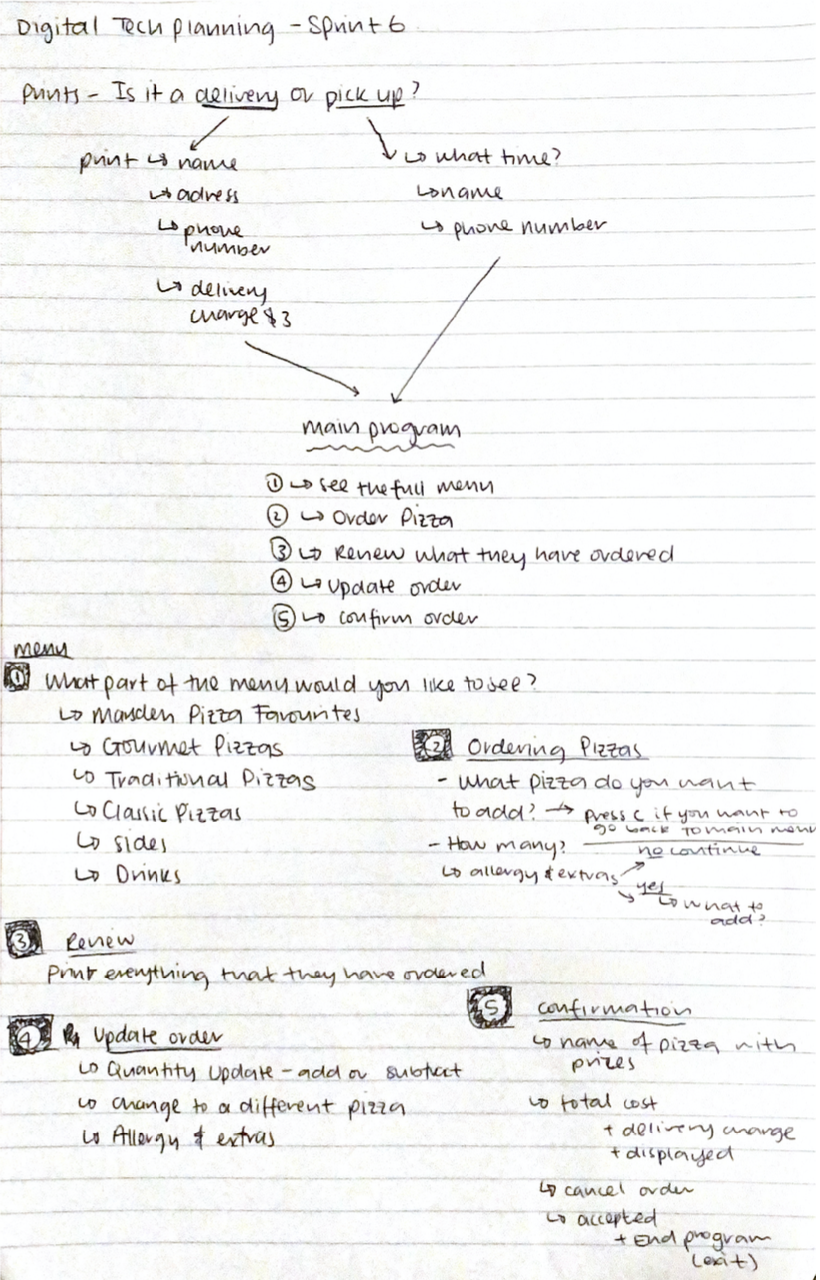 Digital Tech Planning - Sprint 6
Prints - Is it a delivery or pick up?
print ↳ name
↳ adress
↳ phone
number
↳ delivery
charge $3
↳ what time?
↳ name
↳ phone number
main program
① ↳ see the full menu
② ↳ Order Pizza
③ ↳ Review what they have ordered
④ ↳ update order
⑤ ↳ confirm order
menu
1 What part of the menu would you like to see?
↳ Marsden Pizza Favourites
↳ Gourmet Pizzas
↳ Traditional Pizzas
↳ Classic Pizzas
↳ sides
↳ Drinks
2 Ordering Pizzas
- What pizza do you want
to add? → press C if you want to
go back to main menu
- How many?
no continue
↳ allergy & extras
yes
↳ what to
add?
3 Review
Print everything that they have ordered
4 Update order
↳ Quantity update - add or subtract
↳ change to a different pizza
↳ Allergy & extras
5 confirmation
↳ name of pizza with
prizes
↳ total cost
+ delivery charge
+ displayed
↳ cancel order
↳ accepted
+ End program
(exit)